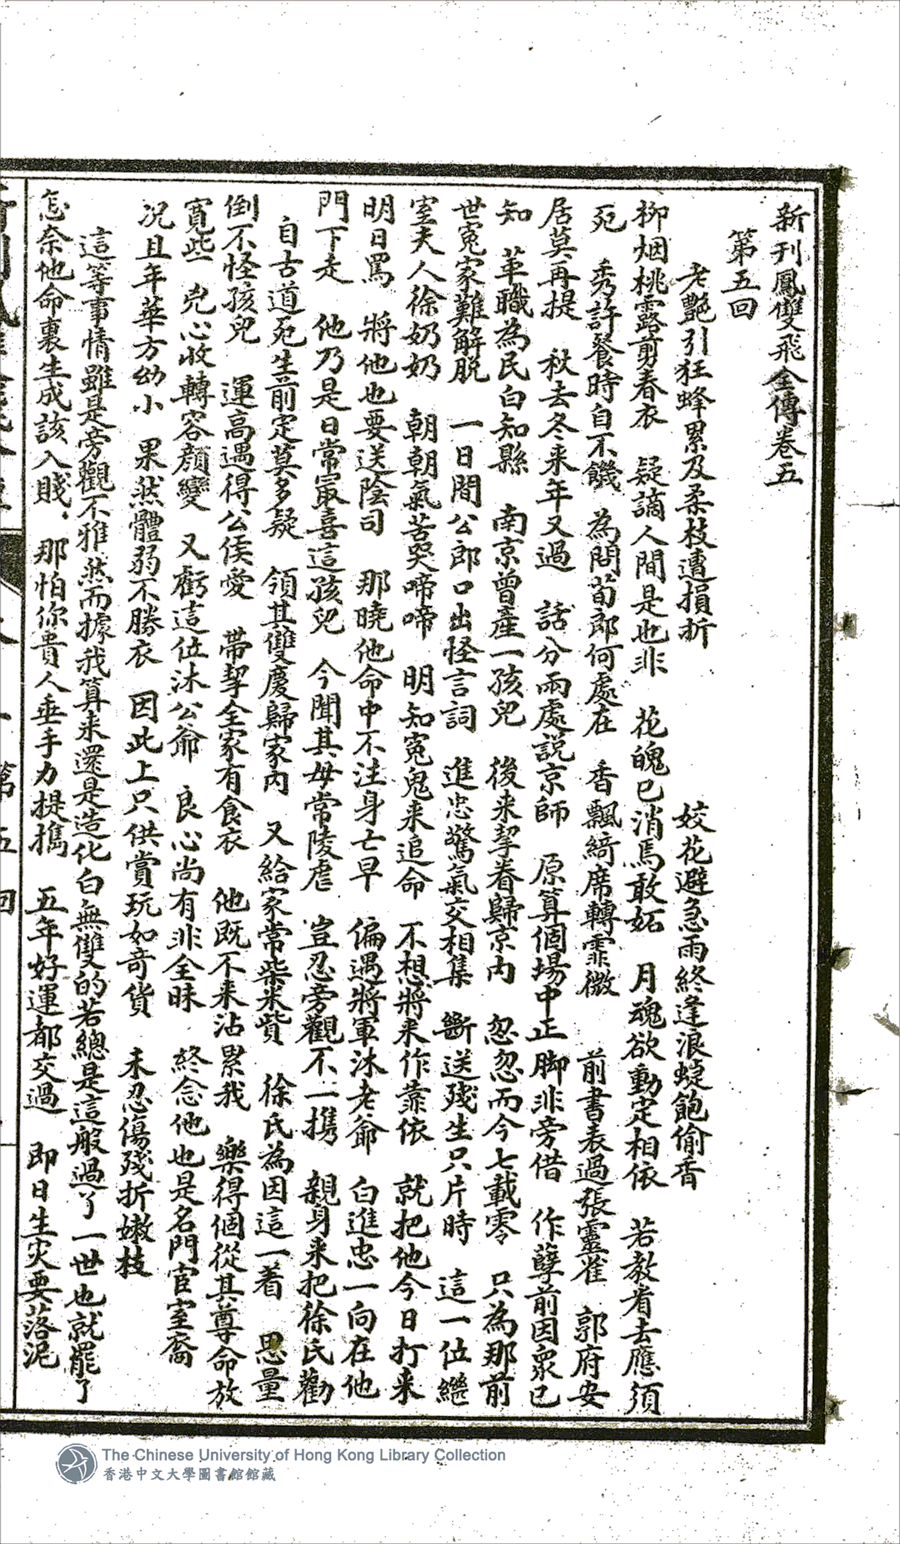 新刊鳳雙飛全傳卷五
第五回
老艷引狂蜂累及柔枝遭損折 姣花避急雨終逢浪蝶飽偷香
柳烟桃露剪春衣 疑謫人間是也非 花魄已消馬敢妬 月魂欲動定相依 若教看去應須
死 秀許餐時自不饑 為問荀郎何處在 香飄綺席轉霏微 前書表過張靈雀 郭府安
居莫再提 秋去冬来年又過 話分兩處説京師 原算個場中正脚非旁借 作孽前因衆已
知 革職為民白知縣 南京曾產一孩兒 後来挈眷歸京内 忽忽而今七載零 只為那前
世寃家難解脱 一日間公郎口出怪言詞 進忠驚氣交相集 斷送殘生只片時 這一位繼
室夫人徐奶奶 朝朝氣苦哭啼啼 明知寃鬼来追命 不想將来作靠依 就把他今日打来
明日罵 將他也要送陰司 那曉他命中不注身亡早 偏遇將軍沐老爺 白進忠一向在他
門下走 他乃是日常最喜這孩兒 今聞其母常陵虐 豈忍旁觀不一携 親身来把徐氏勸
自古道死生前定莫多疑 領其雙慶歸家内 又給家常柴米貲 徐氏為因這一着 思量
倒不怪孩兒 運高遇得公侯愛 帶挈全家有食衣 他既不来沾累我 樂得個從其尊命放
寬些 兇心收轉容顔變 又虧這位沐公爺 良心尚有非全昧 終念他也是名門宦室裔
况且年華方幼小 果然體弱不勝衣 因此上只供賞玩如奇貨 未忍傷殘折嫩枝
這等事情雖是旁觀不雅然而據我算来還是造化白無雙的若總是這般過了一世也就罷了
怎奈他命裏生成該入賤 那怕你貴人垂手力提携 五年好運都交過 即日生灾要落泥
第五回
The Chinese University of Hong Kong Library Collection
香港中文大學圖書館館藏